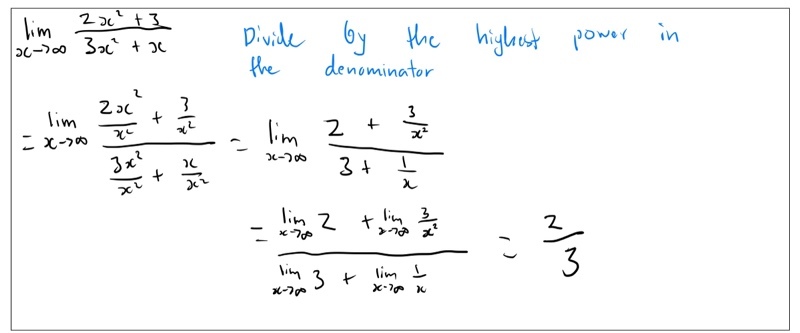 lim x→∞ (2x² + 3)/(3x² + x)
Divide by the highest power in
the denominator
= lim x→∞ (2x²/x² + 3/x²)/(3x²/x² + x/x²) = lim x→∞ (2 + 3/x²)/(3 + 1/x)
= (lim x→∞ 2 + lim x→∞ 3/x²)/(lim x→∞ 3 + lim x→∞ 1/x) = 2/3